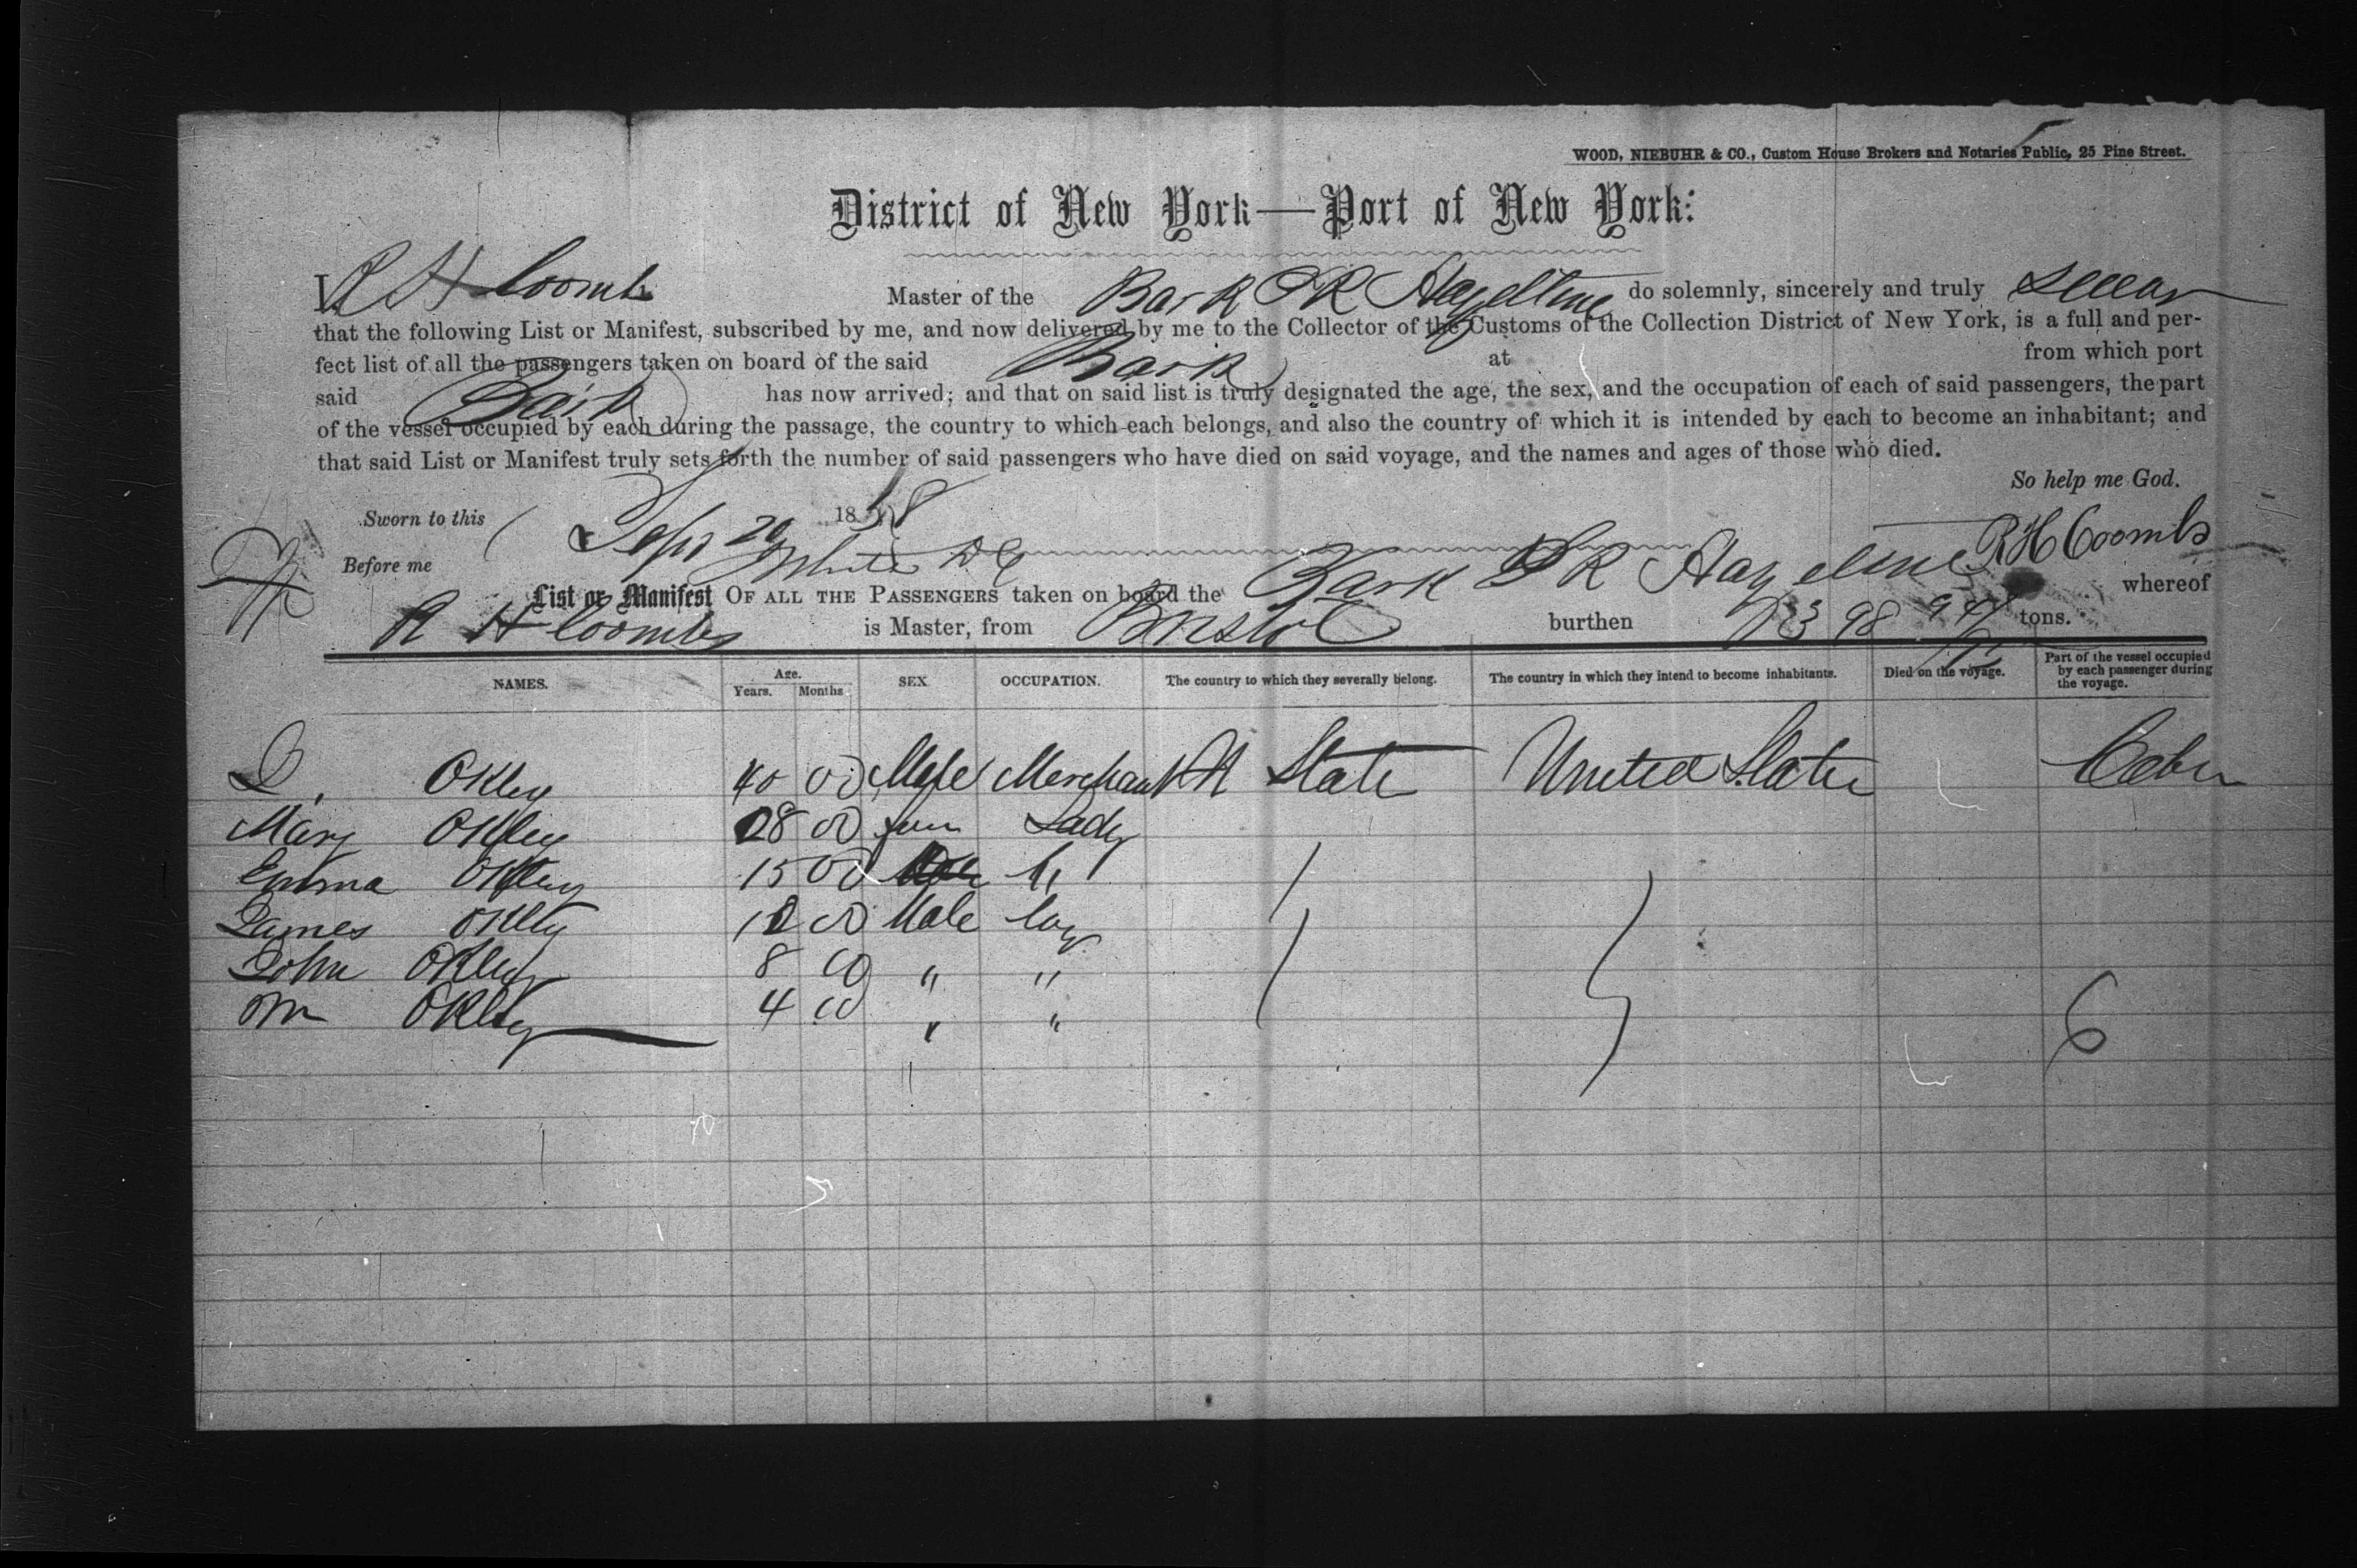 WOOD, NIEBUHR & CO., Custom House Brokers and Notaries Public, 25 Pine Street.
District of New York—Port of New York:
I, R H Coombs Master of the Bark S R Hazeltine do solemnly, sincerely and truly swear
that the following List or Manifest, subscribed by me, and now delivered by me to the Collector of the Customs of the Collection District of New York, is a full and per-
fect list of all the passengers taken on board of the said Bark at from which port
said Bark has now arrived; and that on said list is truly designated the age, the sex, and the occupation of each of said passengers, the part
of the vessel occupied by each during the passage, the country to which each belongs, and also the country of which it is intended by each to become an inhabitant; and
that said List or Manifest truly sets forth the number of said passengers who have died on said voyage, and the names and ages of those who died.
So help me God.
Sworn to this Sept 20 18
Before me White R H Coombs
List or Manifest OF ALL THE PASSENGERS taken on board the Bark S R Hazeltine whereof
R H Coombs is Master, from Bristol burthen tons.
NAMES. Age. Years. Months. SEX. OCCUPATION. The country to which they severally belong. The country in which they intend to become inhabitants. Died on the voyage. Part of the vessel occupied by each passenger during the voyage.
Okley 40 00 Male Merchant State United States
Mary Okley 28 00 fem Lady
Emma Okley 15 00 "
James Okley 00 Male boy
John Okley 8 00 " "
Wm Okley 4 00 " "
6